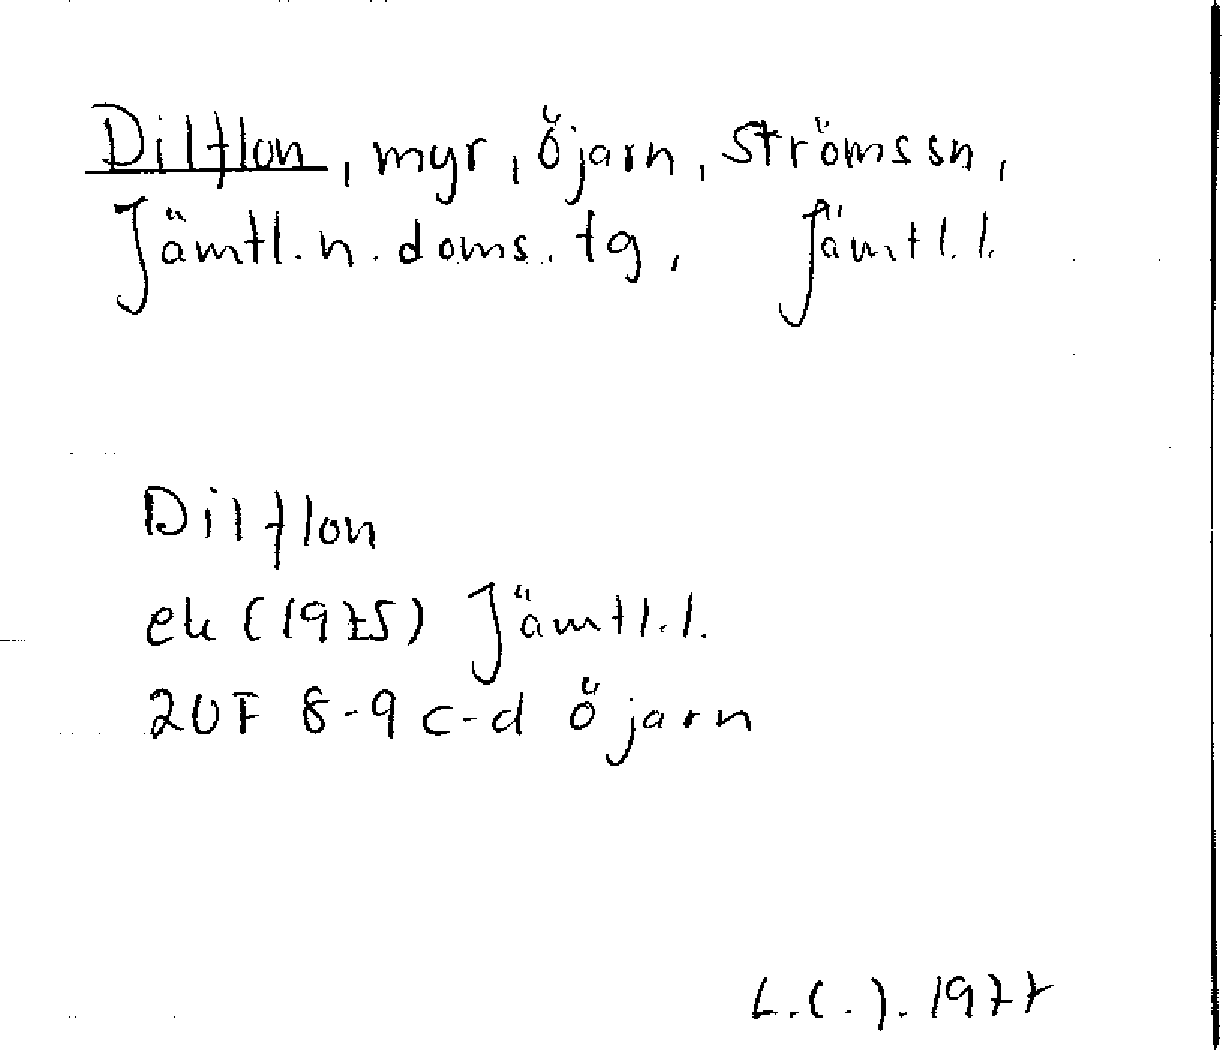 Dilflon, myr, Öjarn, Strömssn,
Jämtl. n. doms. tg, Jämtl. l.
Dilflon
ek (1975) Jämtl. l.
20F 8-9 c-d Öjarn
1977